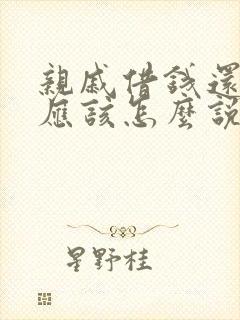 親戚借錢還
應該怎麼說
星野桂